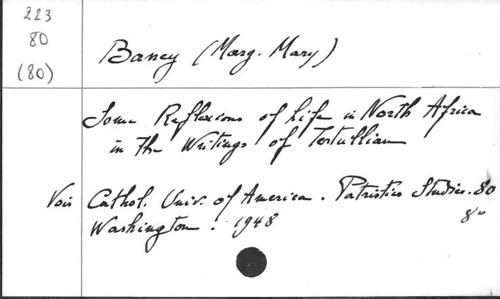 223
80
(80)
Baney (Marg. Mary)
Some Reflexions of Life in North Africa
in The Writings of Tertullian
Vois Cathol. Univ. of America. Patristics Studies. 80
Washington. 1948 8°